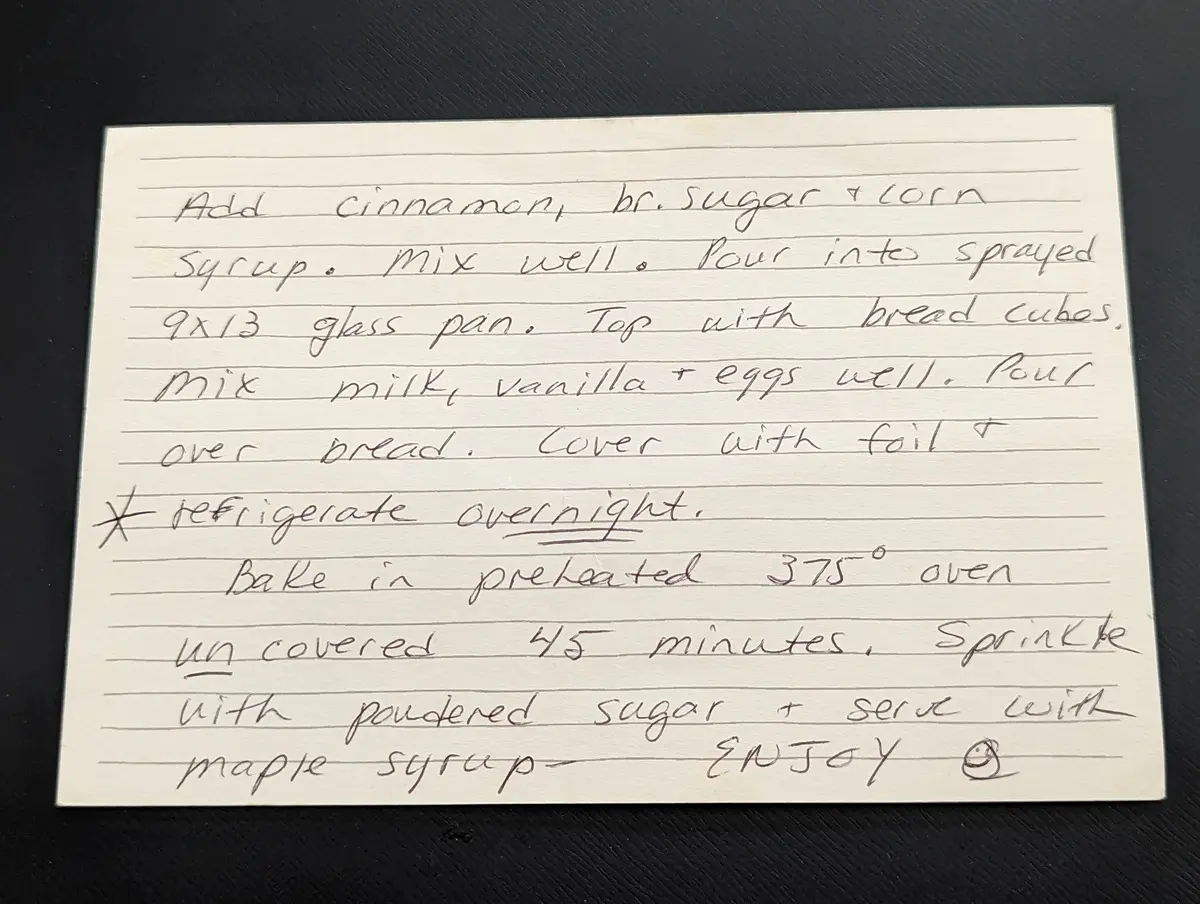 Add cinnamon, br. sugar + corn
syrup. Mix well. Pour into sprayed
9x13 glass pan. Top with bread cubes.
Mix milk, vanilla + eggs well. Pour
over bread. Cover with foil +
* refrigerate overnight.
Bake in preheated 375° oven
uncovered 45 minutes. Sprinkle
with powdered sugar + serve with
maple syrup- ENJOY ☺